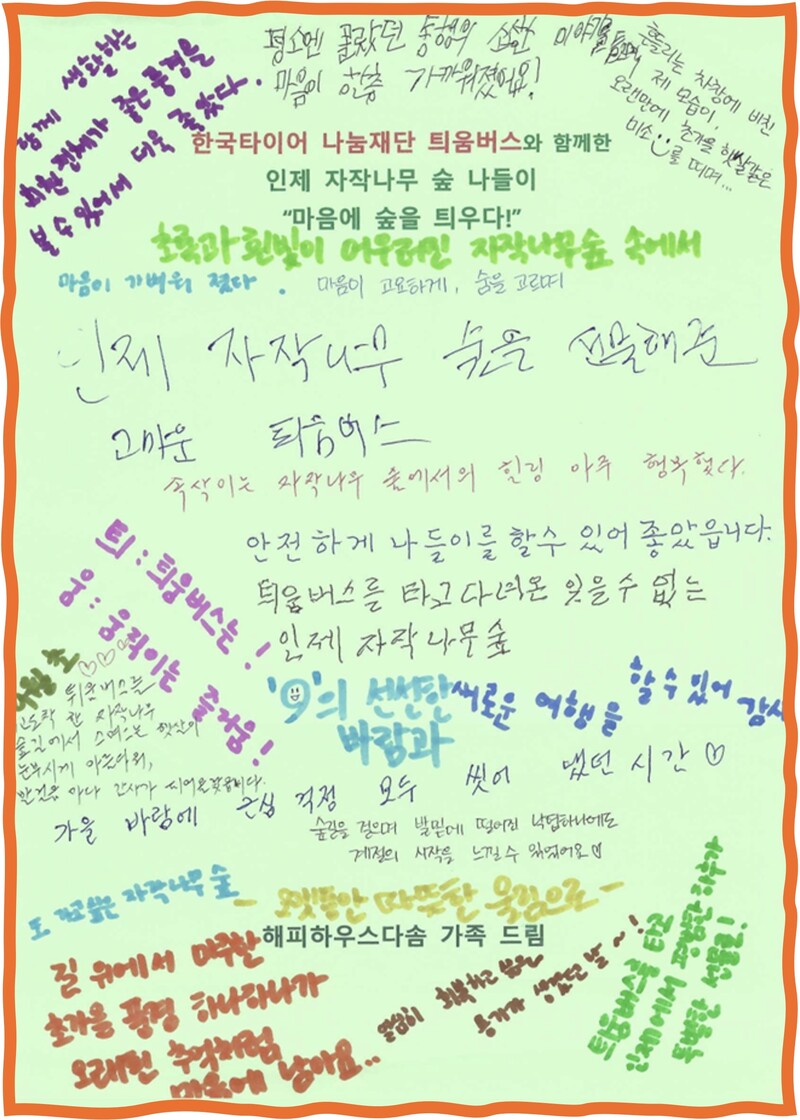 함께 생활하는
회원 전체가 좋은 풍경을
볼 수 있어서 더욱 좋았다.
평소엔 몰랐던 동행의 소소한 이야기를 들으며
마음이 한층 가까워졌어요!
흔들리는 차창에 비친
제 모습이,
오랜만에 초가을 햇살같은
미소를 띠며...
한국타이어 나눔재단 틔움버스와 함께한
인제 자작나무 숲 나들이
“마음에 숲을 틔우다!”
초록과 흰빛이 어우러진 자작나무숲 속에서
마음이 가벼워 졌다.
마음이 고요하게, 숨을 고르며
인제 자작나무 숲을 선물해준
고마운 틔움버스
속삭이는 자작나무 숲에서의 힐링 아주 행복했다.
안전하게 나들이를 할수 있어 좋았읍니다.
틔움버스를 타고 다녀온 잊을수 없는
인제 자작나무숲
틔 : 틔움버스는!
움 : 움직이는 즐거움!
틔움버스를
자작나무
숲길에서 스며드는 햇살이
눈부시게 아름다워,
'9'의 선선한
바람과
새로운 여행을 할 수 있어 감사
가을 바람에 근심 걱정 모두 씻어 냈던 시간♡
숲길을 걸으며 발밑에 떨어진 낙엽하나에도
계절의 시작을 느낄 수 있었어요
또 가고싶은 자작나무 숲
- 오랫동안 따뜻한 울림으로 -
해피하우스다솜 가족 드림
길 위에서 마주한
초가을 풍경 하나하나가
오래된 추억처럼
마음에 남아요..
말씀이 회복하고 싶은
용기가 생겼던 날~!
틔움버스를 타고
인제에서 평범한 하루가
특별한 선물로!